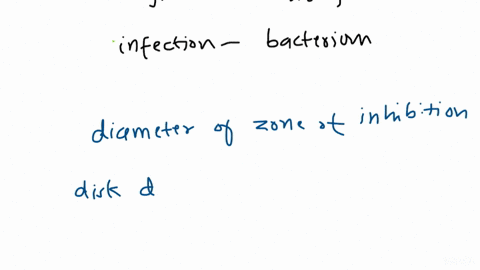 infection - bacterium
diameter of zone of inhibition
disk d